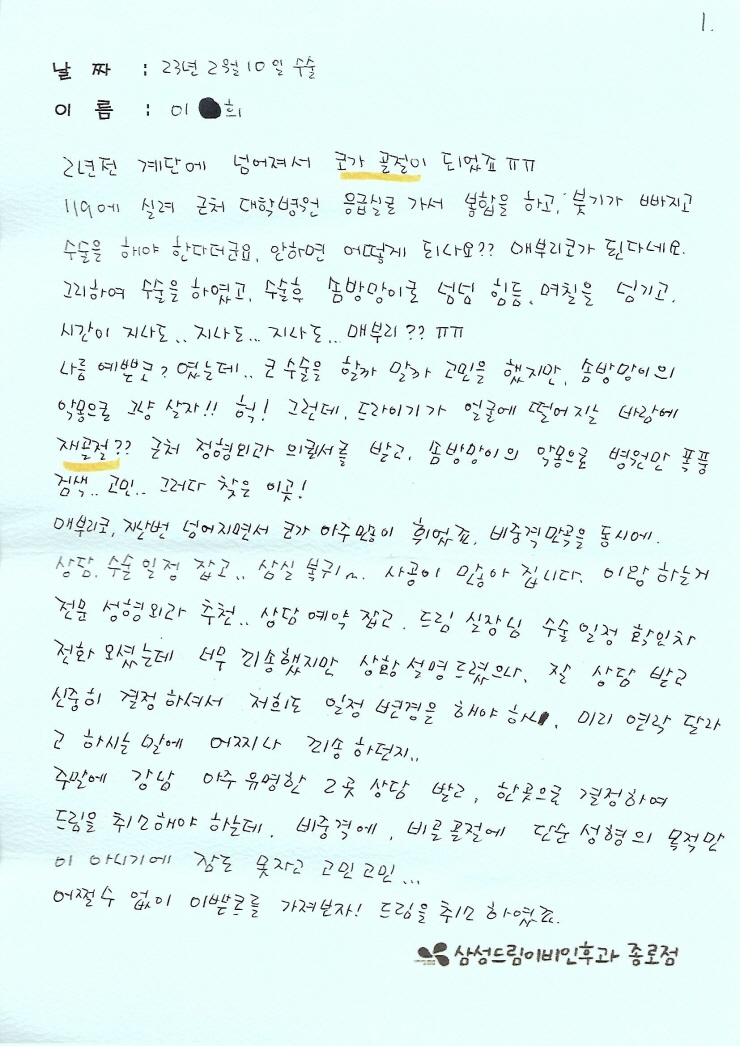 1.
날 짜 : 23년 2월 10일 수술
이 름 : 이 희
2년전 계단에 넘어져서 코가 골절이 되었죠 ㅠㅠ
119에 실려 근처 대학병원 응급실로 가서 봉합을 하고, 붓기가 빠지고
수술을 해야 한다더군요, 안하면 어떻게 되나요?? 매부리코가 된다네요.
그리하여 수술을 하였고, 수술후 솜방망이로 넘넘 힘듬, 며칠을 넘기고,
시간이 지나도.. 지나도... 지나도... 매부리?? ㅠㅠ
나름 예쁜코? 였는데.. 코 수술을 할까 말까 고민을 했지만, 솜방망이의
악몽으로 그냥 살자!! 헉! 그런데, 드라이기가 얼굴에 떨어지는 바람에
재골절?? 근처 정형외과 의뢰서를 받고, 솜방망이의 악몽으로 병원만 폭풍
검색.. 고민.. 그러다 찾은 이곳!
매부리코, 지난번 넘어지면서 코가 아주 많이 휘었죠, 비중격만곡을 동시에.
상담, 수술 일정 잡고.. 삼실 복귀~. 사공이 많아 집니다. 이왕 하는거
전문 성형외과 추천.. 상담 예약 잡고, 드림 실장님 수술 일정 확인차
전화 오셨는데 너무 죄송했지만 상황 설명 드렸으나, 잘 상담 받고
신중히 결정 하셔서 저희도 일정 변경을 해야 하니, 미리 연락 달라
고 하시는 말에 어찌나 죄송 하던지..
주말에 강남 아주 유명한 2곳 상담 받고, 한곳으로 결정하여
드림을 취소해야 하는데, 비중격에, 비골골절에 단순 성형의 목적만
이 아니기에 잠도 못자고 고민고민...
어쩔수 없이 이쁜코를 가져보자! 드림을 취소 하였죠.
삼성드림이비인후과 종로점